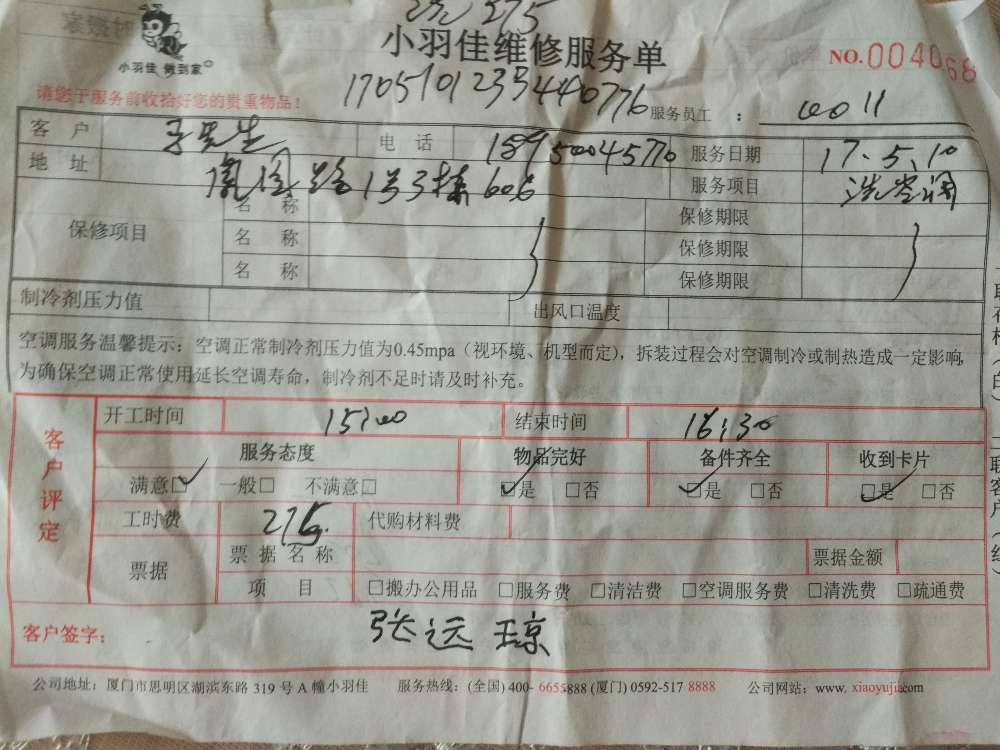 275
小羽佳维修服务单
NO.0040068
小羽佳 做到家
请您于服务前收拾好您的贵重物品！
1705101233440776
服务员工 ： 0011
客 户 王先生 电 话 18950045770 服务日期 17.5.10
地 址 凤凰路1号3栋606 服务项目 洗空调
保修项目 名 称 保修期限
名 称 保修期限
名 称 保修期限
制冷剂压力值 出风口温度
空调服务温馨提示：空调正常制冷剂压力值为0.45mpa（视环境、机型而定），拆装过程会对空调制冷或制热造成一定影响，
为确保空调正常使用延长空调寿命，制冷剂不足时请及时补充。
客户评定
开工时间 15:00 结束时间 16:30
服务态度 物品完好 备件齐全 收到卡片
满意☑ 一般□ 不满意□ ☑是 □否 ☑是 □否 ☑是 □否
工时费 275. 代购材料费
票据 票 据 名 称 票据金额
项 目 □搬办公用品 □服务费 □清洁费 □空调服务费 □清洗费 □疏通费
客户签字： 张远 琼
公司地址：厦门市思明区湖滨东路 319 号 A 幢小羽佳 服务热线：(全国) 400- 6655888 (厦门) 0592-517 8888 公司网站：www. xiaoyujia.com